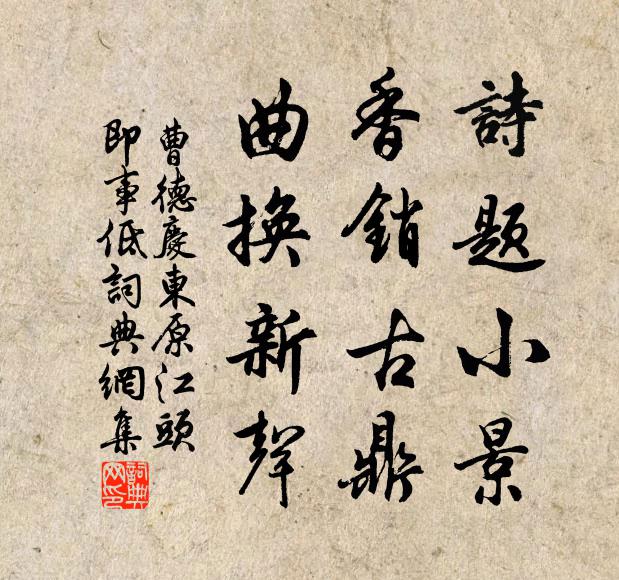 詩題小景
香銷古鼎
曲換新聲
曹德慶東原江頭
即事低詞典網集
詞典网印